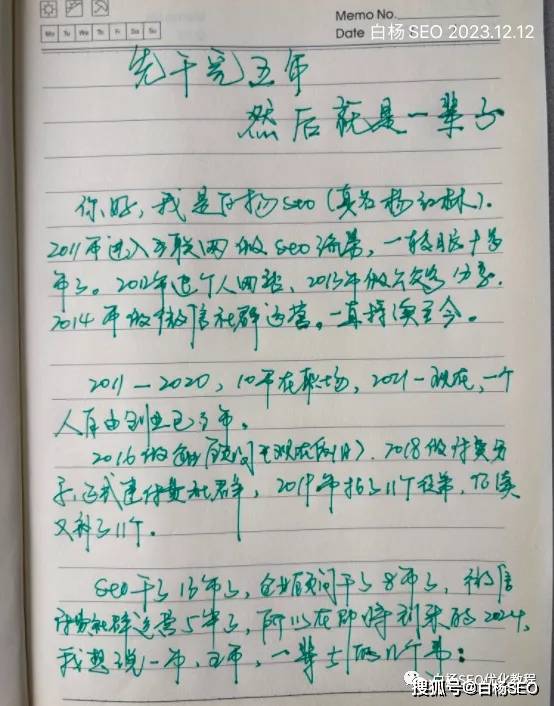 Memo No.
Mo Tu We Th Fr Sa Su
Date
白杨SEO 2023.12.12
先干完五年
然后就是一辈子
你好，我是白杨SEO（真名杨红林）。
2011年进入互联网做SEO编辑，一转眼十多
年了。2012年建个人网站、2013年做公众号分享，
2014年做微信社群运营。一直持续至今。
2011—2020，10年在职场，2021—现在，一个
人自由创业已3年。
2016做企业顾问（现在仍旧），2018做付费分
享，正式建付费社群，2019年招了11个徒弟，
又补了11个。
SEO干了13年了，企业顾问干了8年了，微信
付费社群运营5年了，所以在即将到来的2024，
我想说一年，五年，一辈子的几个事：
白杨SEO优化教程
搜狐号@白杨SEO